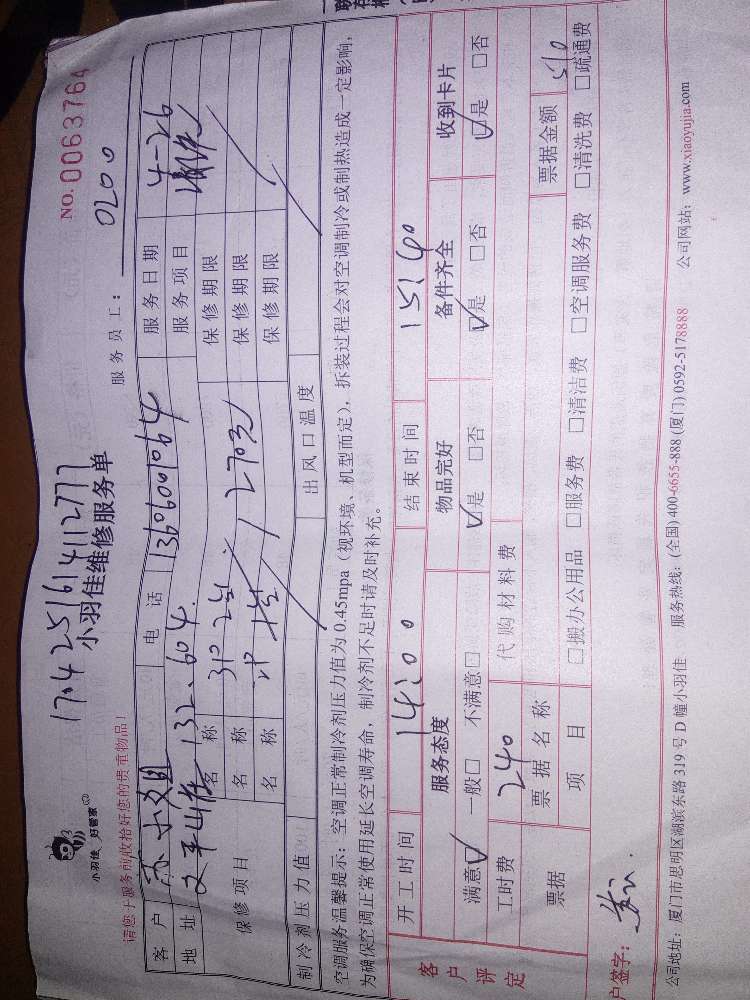 NO.0063764
170425161411277
小羽佳 好管家
小羽佳维修服务单
服务员工: 0200
请您于服务前收拾好您的贵重物品!
客户 电话 13606001064 服务日期 4-26
地址 132.604 服务项目
保修项目 名称 保修期限
名称 1270元 保修期限
名称 保修期限
制冷剂压力值 出风口温度
空调服务温馨提示: 空调正常制冷剂压力值为 0.45mpa (视环境、机型而定), 拆装过程会对空调制冷或制热造成一定影响,
为确保空调正常使用延长空调寿命, 制冷剂不足时请及时补充。
客户评定
开工时间 14:00 结束时间 15:40
服务态度 物品完好 备件齐全 收到卡片
满意☑ 一般□ 不满意□ ☑是 □否 ☑是 □否 ☑是 □否
工时费 240 代购材料费
票据 票据名称 票据金额 510
项目 □搬办公用品 □服务费 □清洁费 □空调服务费 □清洗费 □疏通费
户签字:
公司地址: 厦门市思明区湖滨东路 319 号 D 幢小羽佳 服务热线: (全国) 400-6655-888 (厦门) 0592-5178888 公司网站: www.xiaoyujia.com